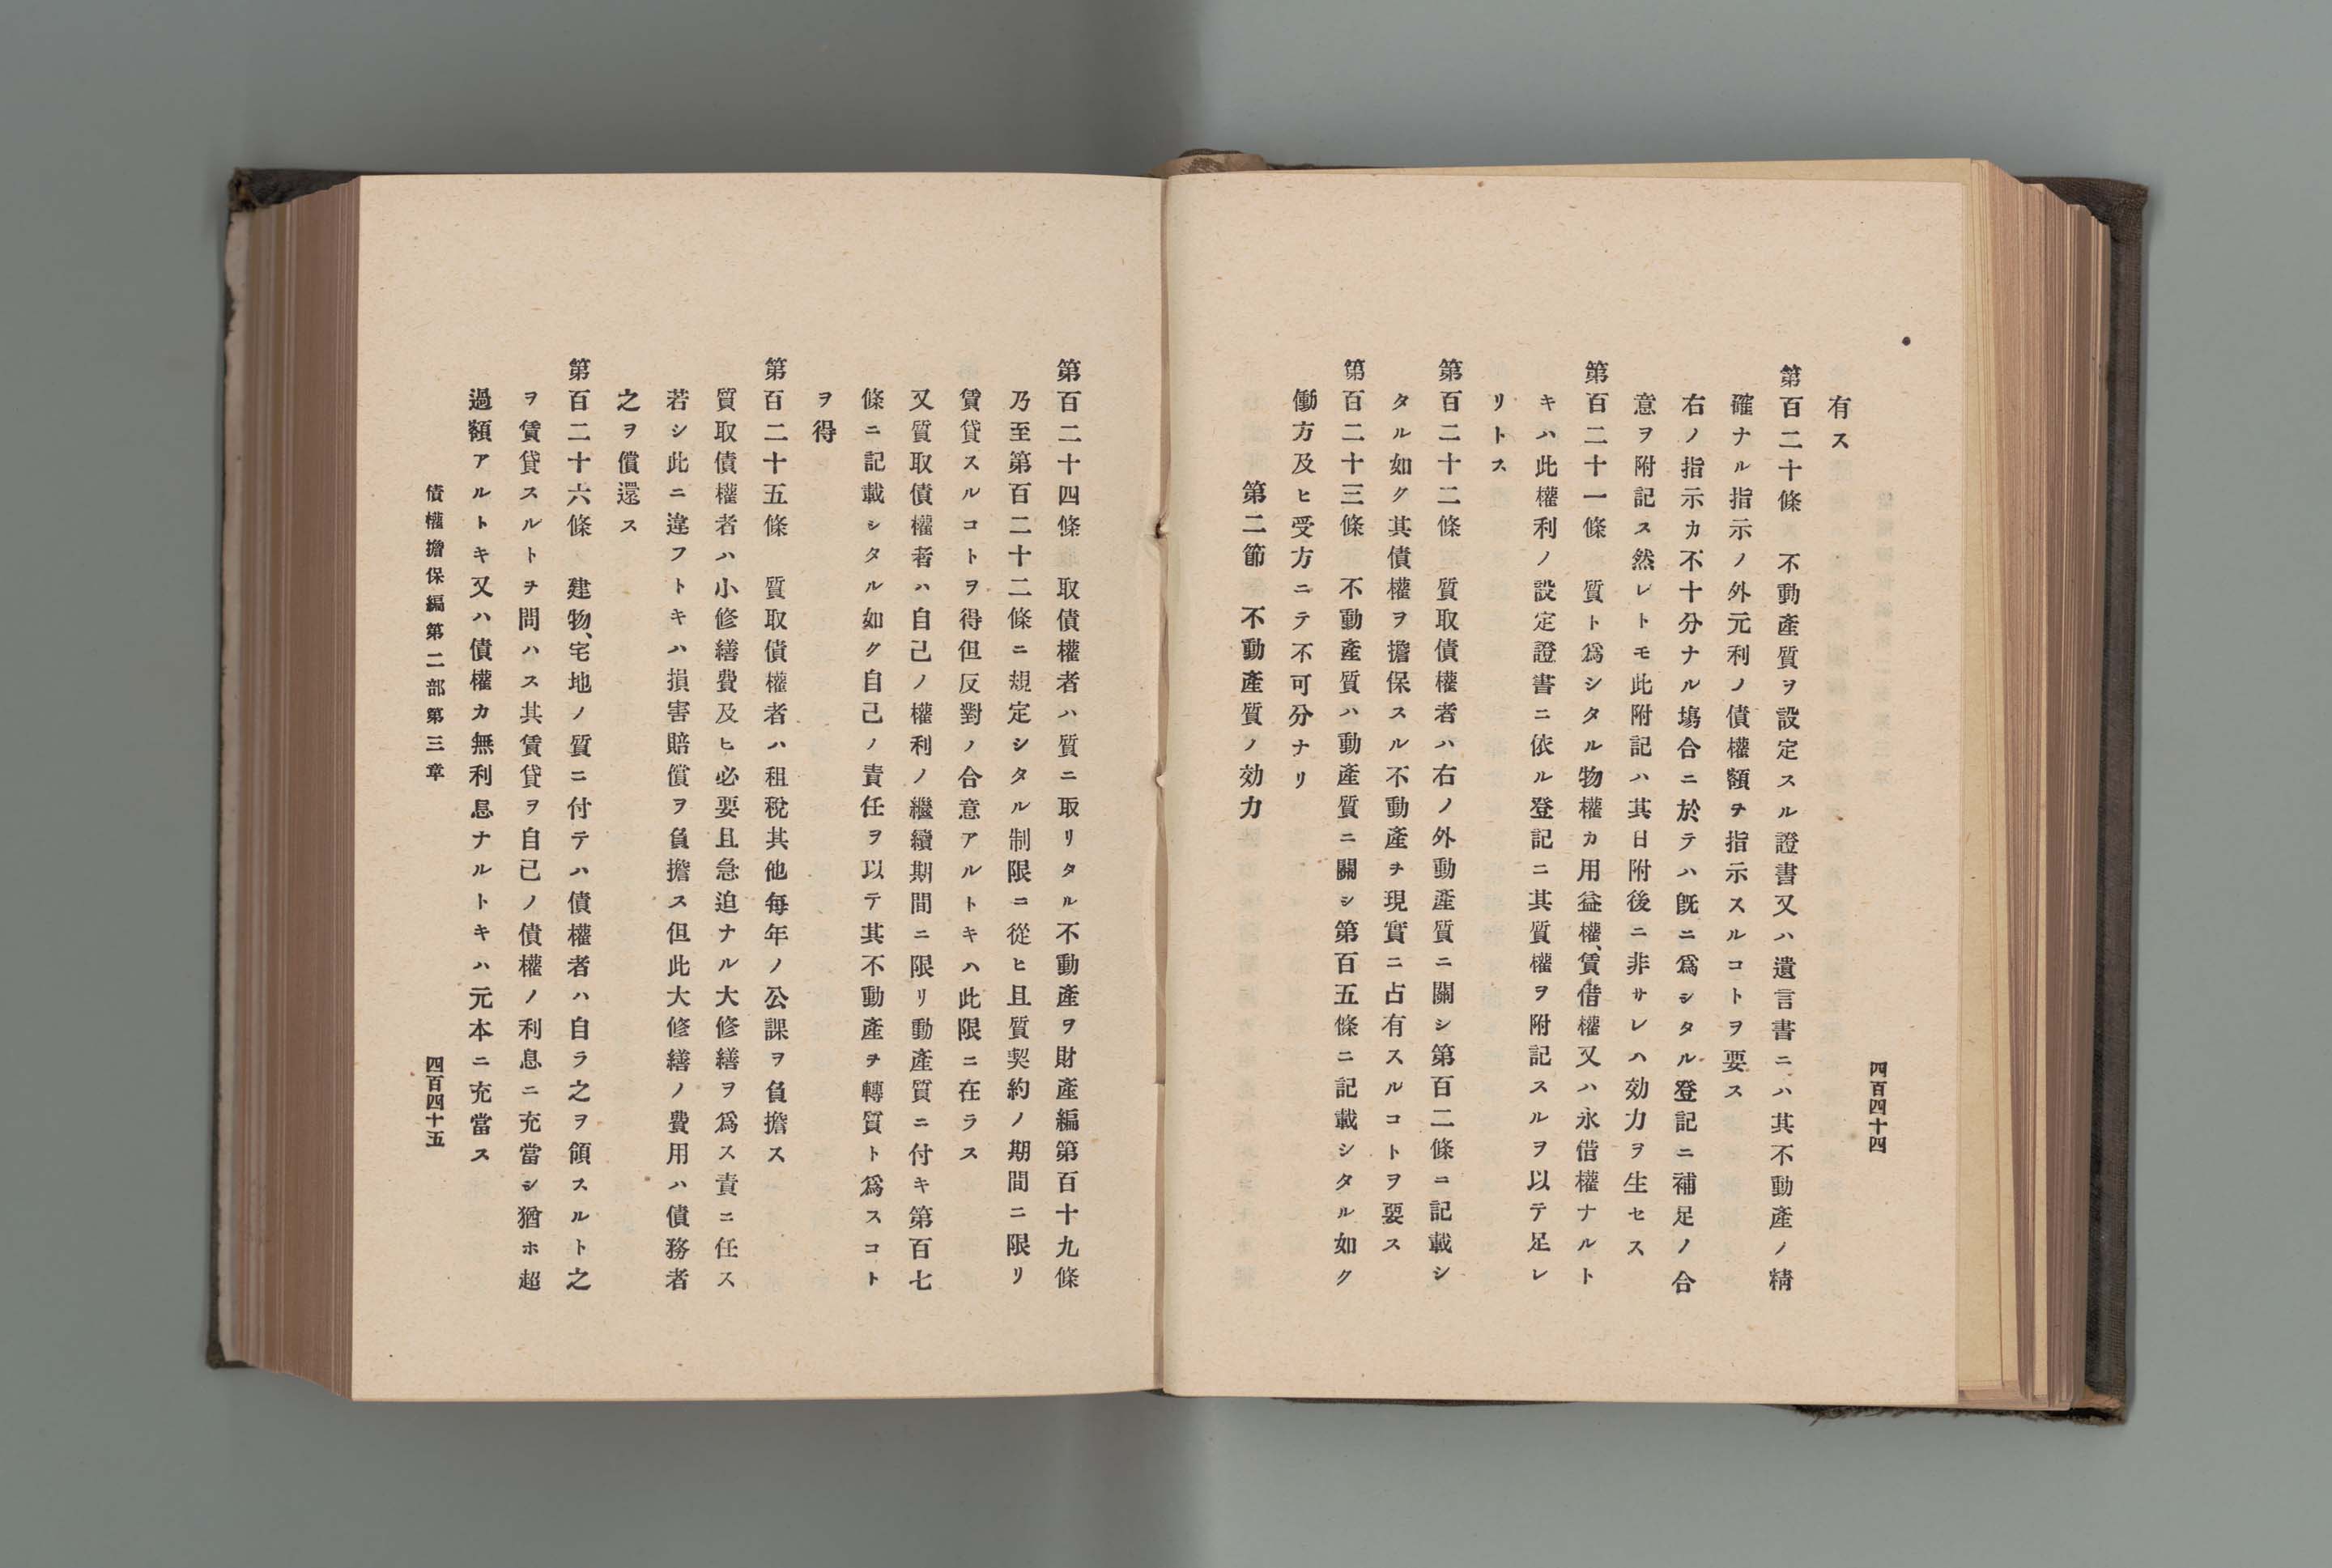 四百四十四
有ス
第百二十條　不動產質ヲ設定スル證書又ハ遺言書ニハ其不動產ノ精
確ナル指示ノ外元利ノ債權額ヲ指示スルコトヲ要ス
右ノ指示カ不十分ナル塲合ニ於テハ旣ニ爲シタル登記ニ補足ノ合
意ヲ附記ス然レトモ此附記ハ其日附後ニ非サレハ効力ヲ生セス
第百二十一條　質ト爲シタル物權カ用益權、賃借權又ハ永借權ナルト
キハ此權利ノ設定證書ニ依ル登記ニ其質權ヲ附記スルヲ以テ足レ
リトス
第百二十二條　質取債權者ハ右ノ外動產質ニ關シ第百二條ニ記載シ
タル如ク其債權ヲ擔保スル不動產ヲ現實ニ占有スルコトヲ要ス
第百二十三條　不動產質ハ動產質ニ關シ第百五條ニ記載シタル如ク
働方及ヒ受方ニテ不可分ナリ
第二節　不動產質ノ効力
第百二十四條　取債權者ハ質ニ取リタル不動產ヲ財產編第百十九條
乃至第百二十二條ニ規定シタル制限ニ從ヒ且質契約ノ期間ニ限リ
賃貸スルコトヲ得但反對ノ合意アルトキハ此限ニ在ラス
又質取債權者ハ自己ノ權利ノ繼續期間ニ限リ動產質ニ付キ第百七
條ニ記載シタル如ク自己ノ責任ヲ以テ其不動產ヲ轉質ト爲スコト
ヲ得
第百二十五條　質取債權者ハ租稅其他每年ノ公課ヲ負擔ス
質取債權者ハ小修繕費及ヒ必要且急迫ナル大修繕ヲ爲ス責ニ任ス
若シ此ニ違フトキハ損害賠償ヲ負擔ス但此大修繕ノ費用ハ債務者
之ヲ償還ス
第百二十六條　建物、宅地ノ質ニ付テハ債權者ハ自ラ之ヲ領スルト之
ヲ賃貸スルトヲ問ハス其賃貸ヲ自己ノ債權ノ利息ニ充當シ猶ホ超
過額アルトキ又ハ債權カ無利息ナルトキハ元本ニ充當ス
債權擔保編第二部第三章
四百四十五